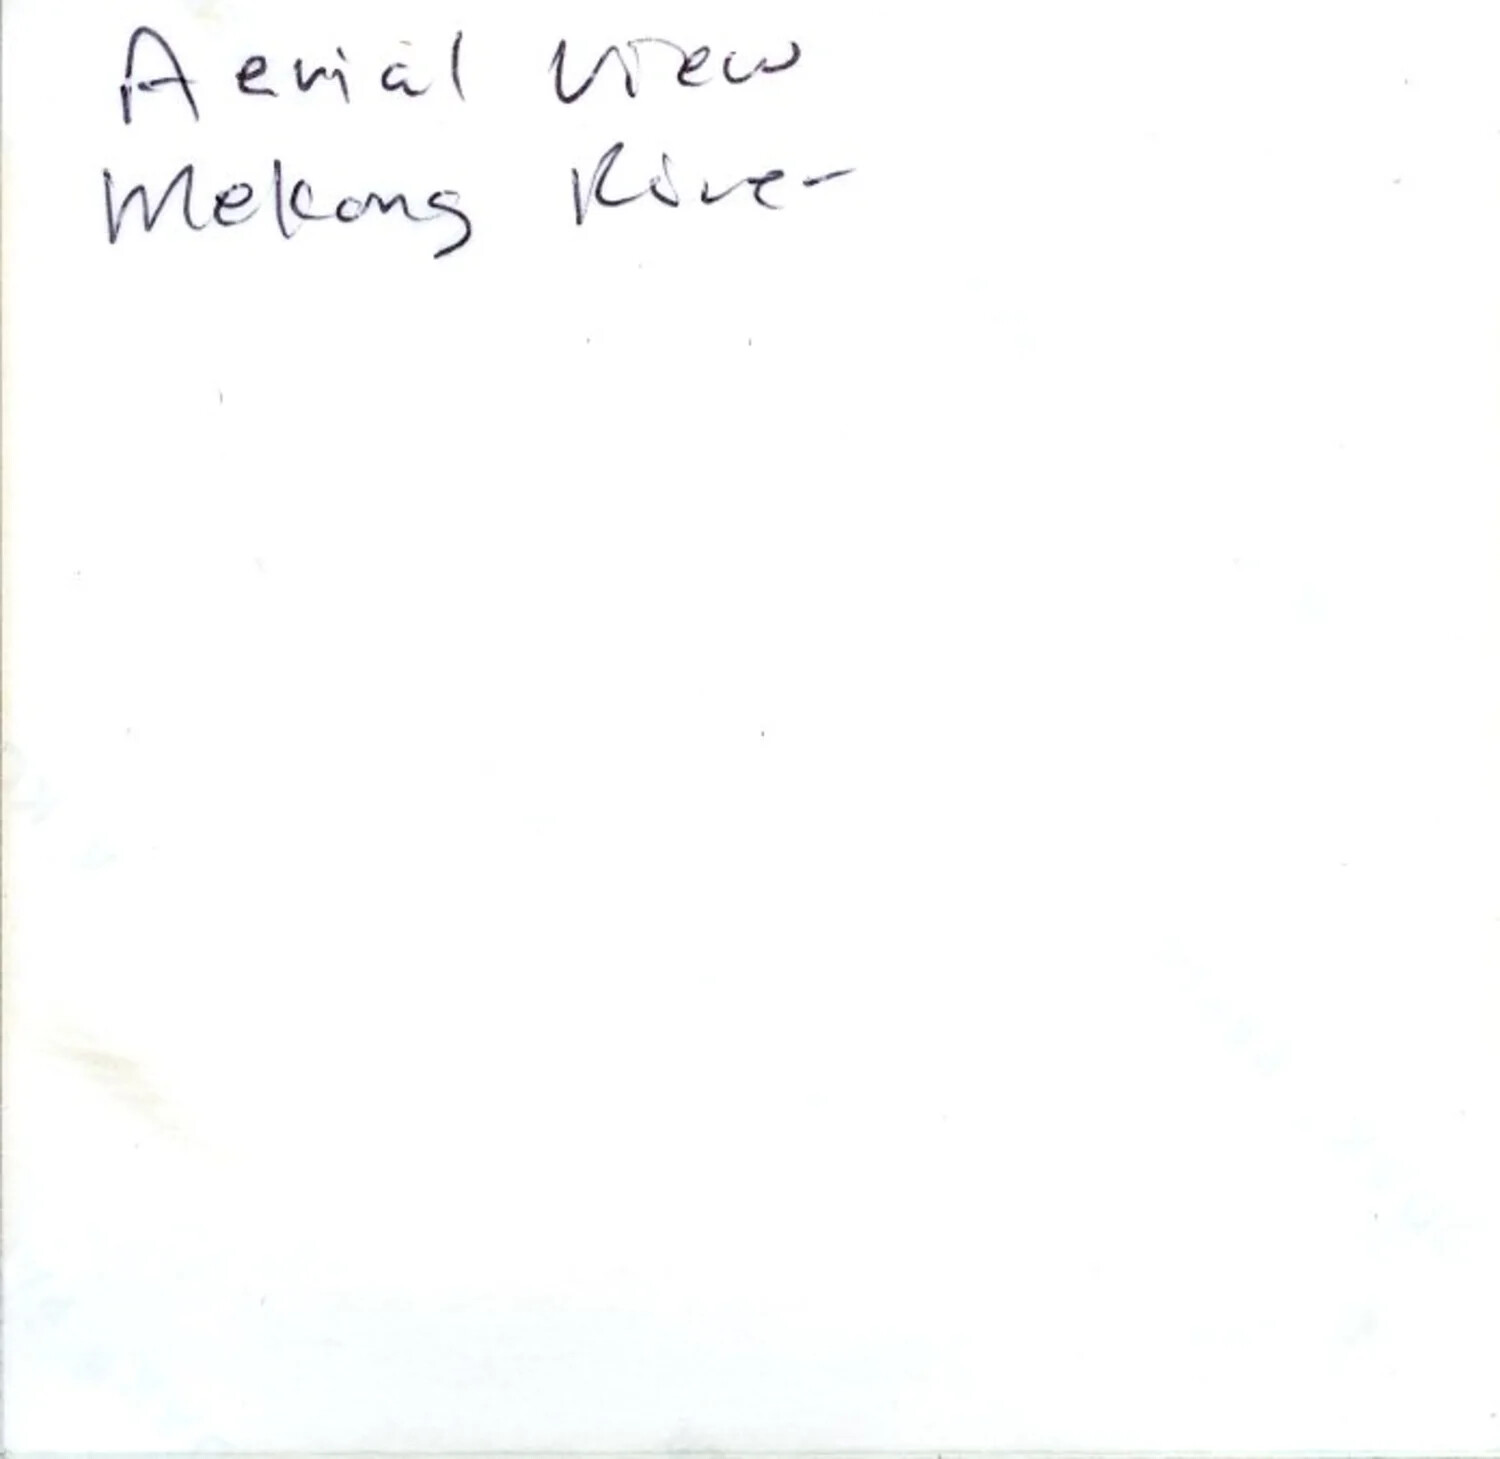 Aerial view
Mekong River